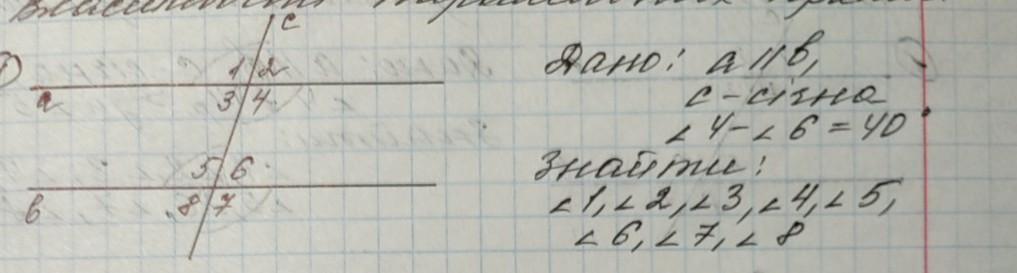 c
1 2
a
3 4
5 6
b
8 7
Дано: a || b,
c - січна
∠4 - ∠6 = 40
Знайти:
∠1, ∠2, ∠3, ∠4, ∠5,
∠6, ∠7, ∠8